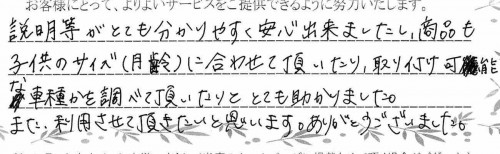 お客様にとって、よりよいサービスをご提供できるように努力いたします。
説明等がとても分かりやすく安心出来ましたし、商品も
子供のサイズ(月齢)に合わせて頂いたり、取り付け可能
な車種かを調べて頂いたりと とても助かりました。
また、利用させて頂きたいと思います。ありがとうございました。